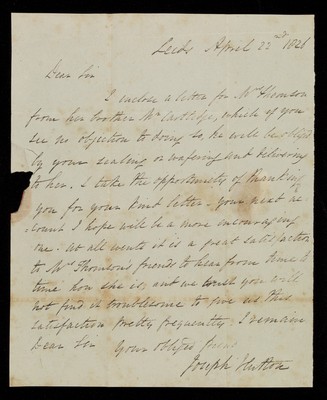 Leeds April 22nd 1826
Dear Sir
I inclose a letter for Mrs Thomson
from her brother Mr Cartledge, which if you
see no objection to doing so, he will be obliged
by your sealing or wafering and delivering
to her. I take the opportunity of thanking
you for your kind letter - your next ac-
count I hope will be a more encouraging
one. At all events it is a great satisfaction
to Mrs Thomson's friends to hear from time to
time how she is, and we trust you will
not find it troublesome to give us this
satisfaction pretty frequently. I remain
Dear Sir Your obliged friend
Joseph Hutton